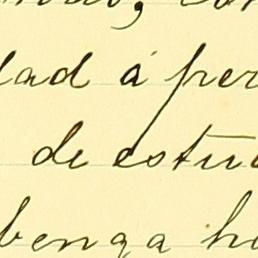 dad á per
de estu
benga h